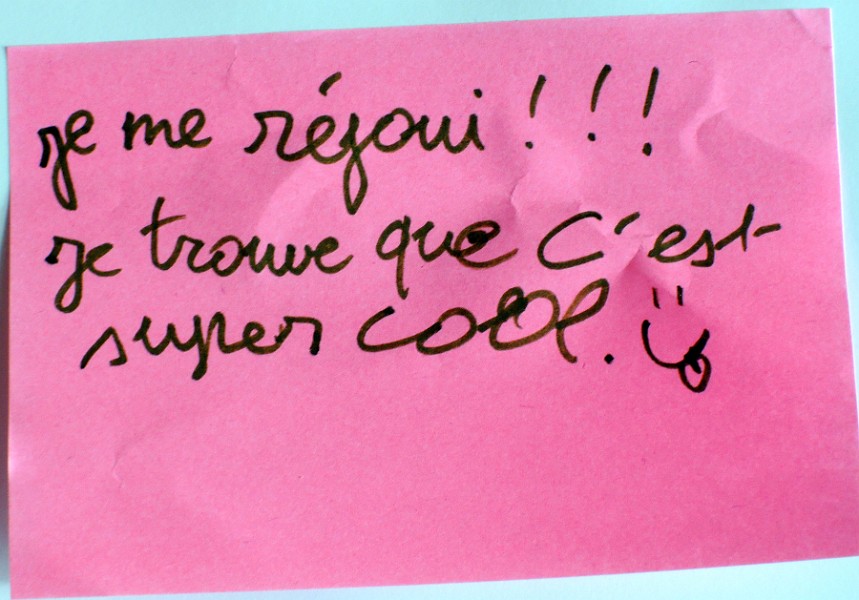 je me réjoui !!!
je trouve que c'est
super cool.